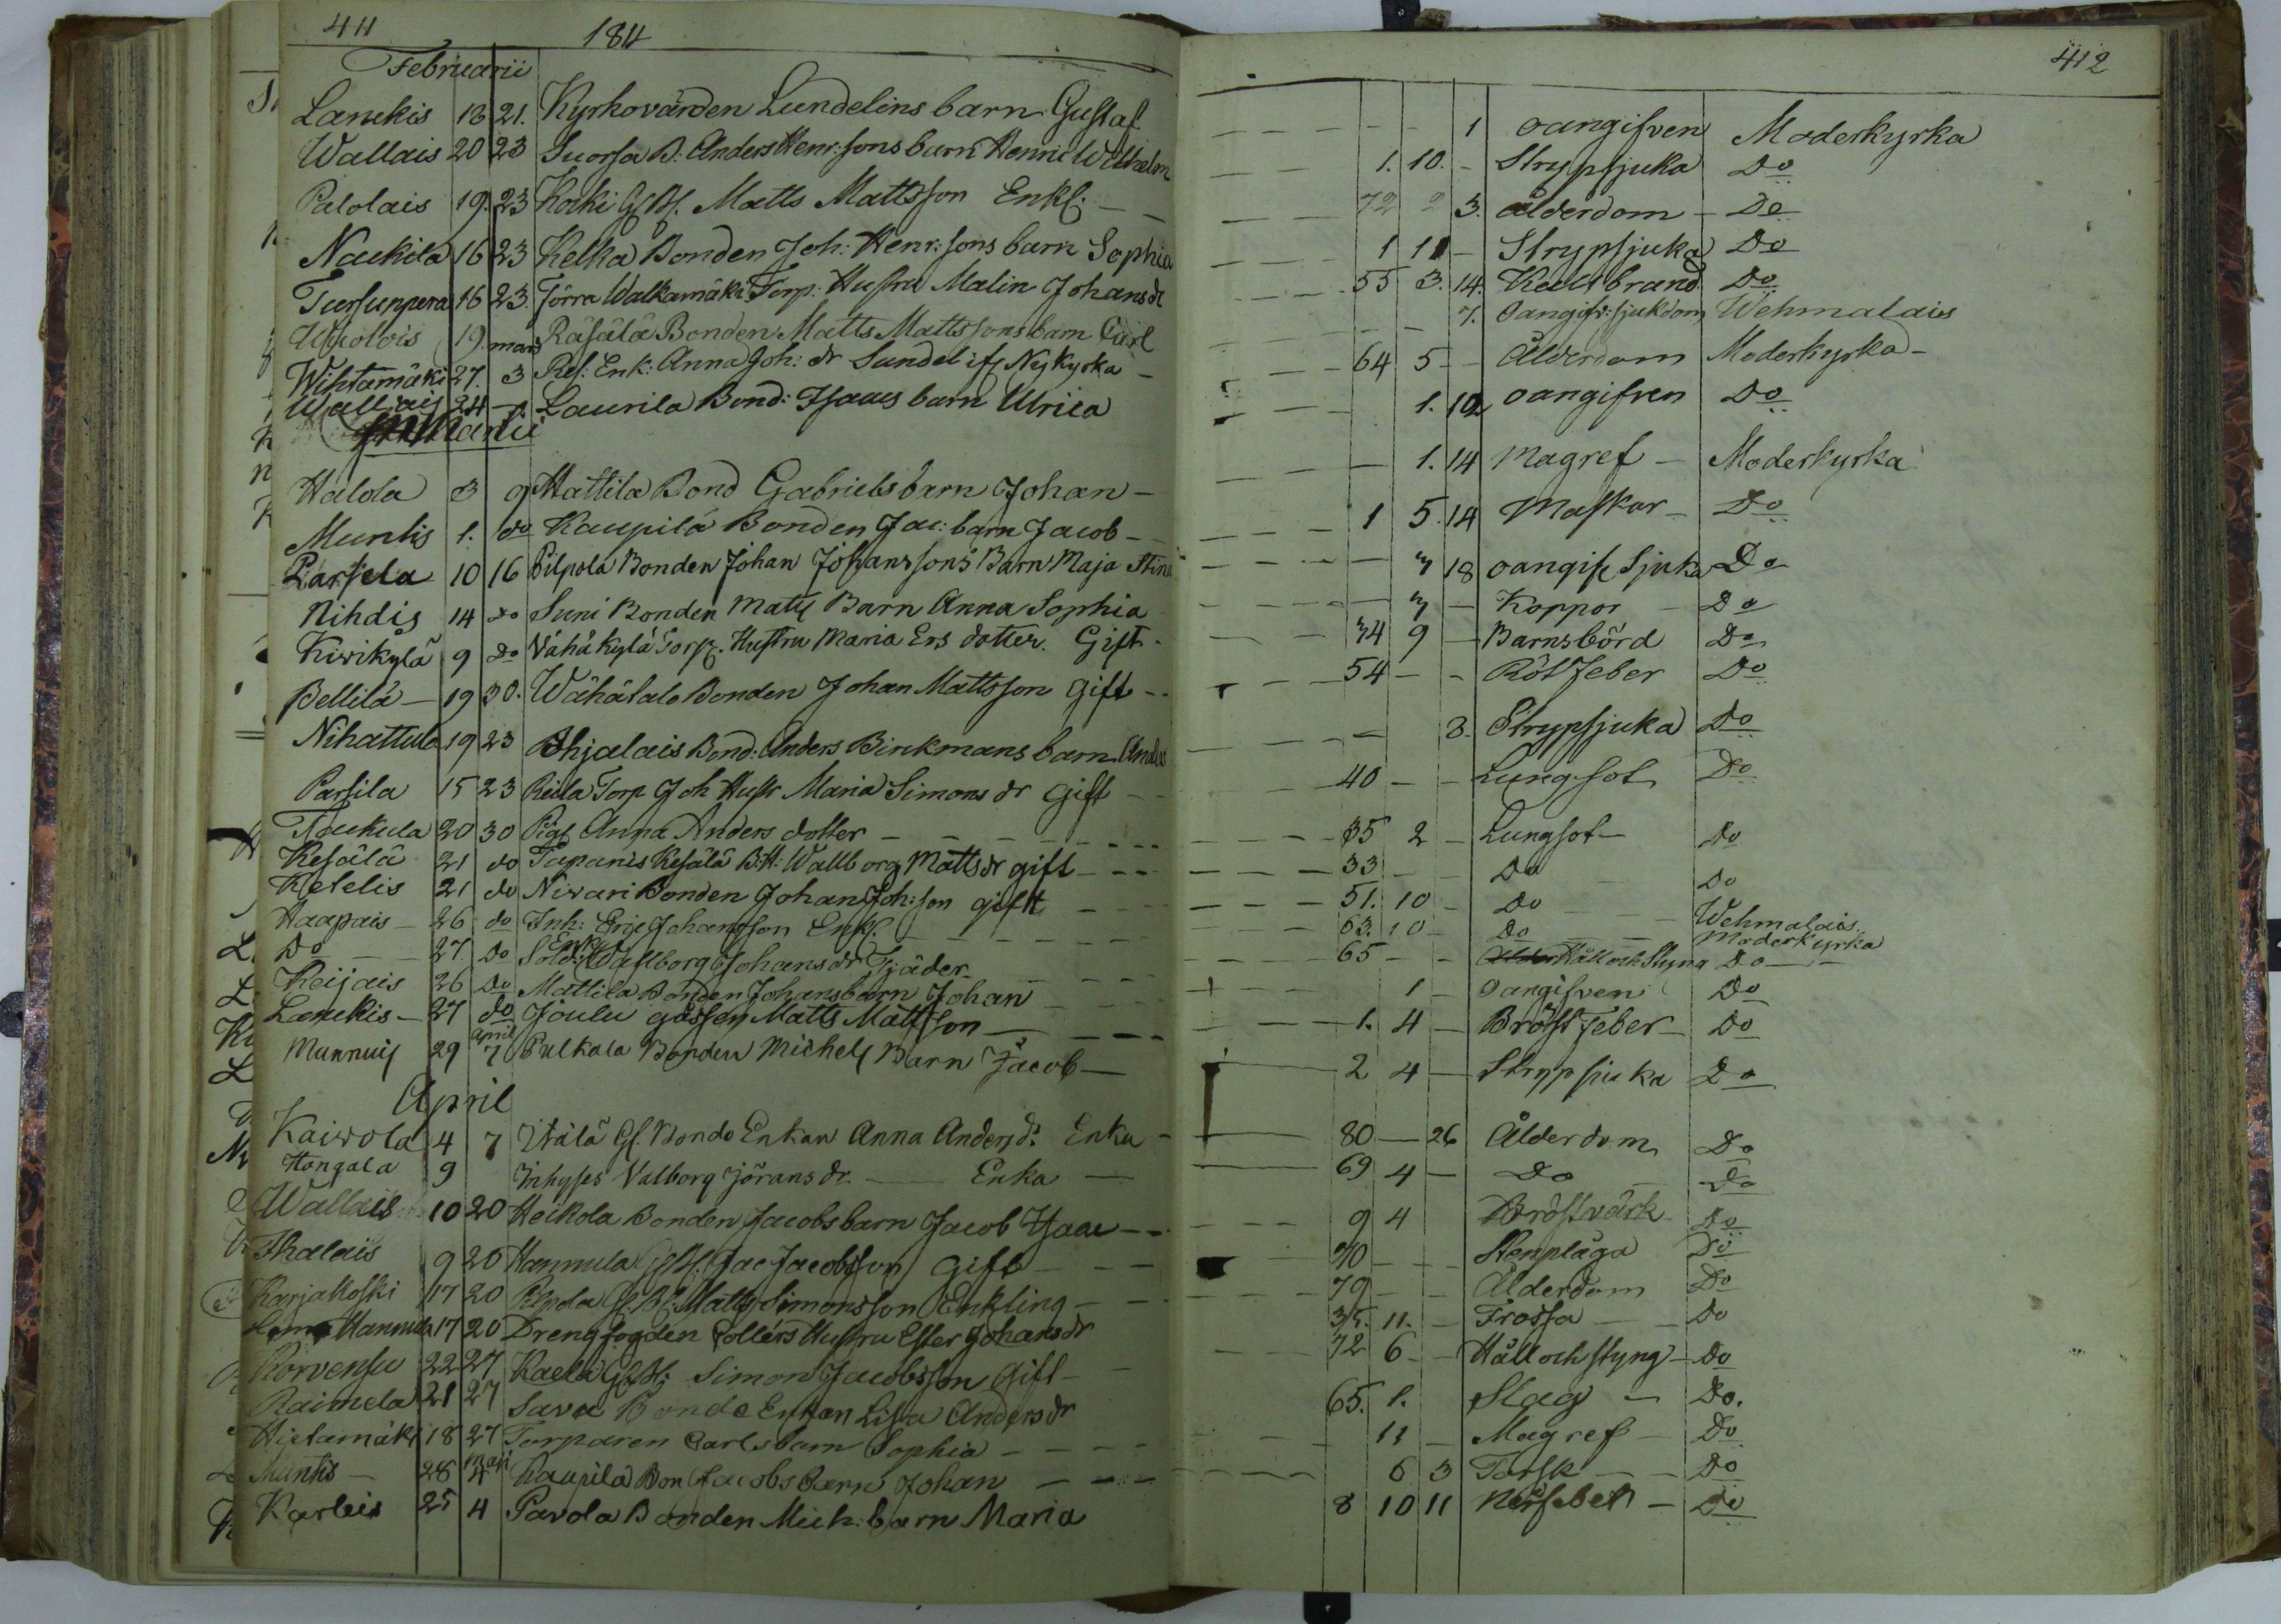 411
184
Februarii
Lanckis 18 21. Kyrkovärden Lundelins barn Gustaf
Wallais 20 23 Suorsa B: Anders Henr:sons barn Henric Wilhelm
Palolais 19. 23 Koski Gl Matts Mattsson Enkl: — —
Naukila 16 23 Kelka Bonden Joh: Henr:sons barn Sophia
Tursunpera 16 23. Jörra Walkamäki Torp: Hustru Malin Johans dr
19. mars Räsälä Bonden Matts Mattssons barn Carl
Wihtamäki 27. 3 Enk: Anna Joh: dr Sundel if Nykyrka —
Wallais 24 — Laurila Bond: Isaacs barn Ulrica
Martii
Halola 3 9 Mattila Bond Gabriels barn Johan —
Muntis 1. do Kaupilä Bonden Jac: barn Jacob — —
Parsela 10 16 Pilpola Bonden Johan Johanssons Barn Maja Stina
Nihdis 14 do Suni Bonden Matts Barn Anna Sophia
Kivikylä 9 do Vähäkylä Torp. Hustru Maria Ers dotter. Gift.
Pellilä — 19 30. Wähätalo Bonden Johan Mattsson gift — —
Nihattula 19 23 Ohjalais Bond: Anders Birckmans barn Anders
Parsila 15 23 Reila Torp Joh Hustr Maria Simons dr gift — —
Taukula 20 30 Pig Anna Anders dotter — — — — — —
Kesälä 21 do Tapanis Kesälä B:H: Wallborg Matts dr gift — — —
Ketelis 21 do Nivari Bonden Johan Joh:son gift — —
Haapais — 26 do Inh: Johansson Enkl. — — — — —
Do — — 27. do Sold: Enk Wallborg Johans dr Tjäder
Keijais 26 Do Mattila Bonden Johans barn Johan — — —
Lanckis — 27 do Joulu gossen Matts Mattsson — — — —
Munnuis 29 april 7 Pulkala Bonden Michels Barn Jacob —
April
Kaivola 4 7 Itälä Gl. Bonde Enkan Anna Anders dr Enka —
Hongala 9 Inhyses Valborg Jörans dr. — Enka —
Wallais 10 20 Heikola Bonden Jacobs barn Jacob Isaac — —
Ihalais 9 20 Hannula Jac Jacobsson Gift — — —
Karjakoski 17 20 Pilpola Gl. B: Matts Simonsson Enkling — —
Hannula 17 20 Drengfogden Hustru Ester Johans dr
Korvensu 22 27 Kaela Simon Jacobsson Gift — —
Raimela 21 27 Sava Bonde Enkan Lisa Anders dr
Hietamäki 18 27 Torparen Carls barn Sophia — — — —
Muntis — 28 maji 4 Kaupila Bon Jacobs Barn Johan — — — —
Karleis 25 4 Pavola Bonden Mich: barn Maria
412
— — — — — 1 oangifven Moderkyrka
— — 1. 10. — Strypsjuka Do
— — 72 2 3. ålderdom — Do
— — 1 11 — Strypsjuka Do
— — 55 3. 14. Kallbrand Do
— — 7. Oangifv: sjukdom Wehmalais
— — 64 5 — Ålderdom Moderkyrka —
— — 1. 10 oangifven Do
— — 1. 14 Magref — Moderkyrka
— — 1 5. 14 Maskar — Do
— — — 7 18 oangifv Sjuka Do
— — — 7 — Koppor — Do
— — 34 9 — Barnsbörd Do
— — 54 — — Röt Feber Do
— — — 3. Strypsjuka Do
— — 40 — — Lungsot Do
— — 35 2 — Lungsot — Do
— — 33 — — Do Do
— — 51. 10 — Do — — Wehmalais.
— — 63. 10 — Do — — Moderkyrka
— — 65 — — Håll och Styng Do —
— — — 1 — oangifven Do
— — 1. 4 — Bröst Feber — Do
— — 2 4 — Strypsjuka Do
— 80 — 26 Ålderdom Do
— 69 4 — Do — Do
— — 9 4 Bröstvärk Do
40 — — — Stenplåga Do
79 — — Ålderdom Do
35. 11. — Frossa — — Do
— — 72 6 — Håll och styng — Do
65. 1. Slag — Do.
— — 11 — Magref — Do
— — — 6 3 Torsk — — Do
8 10 11 — Do